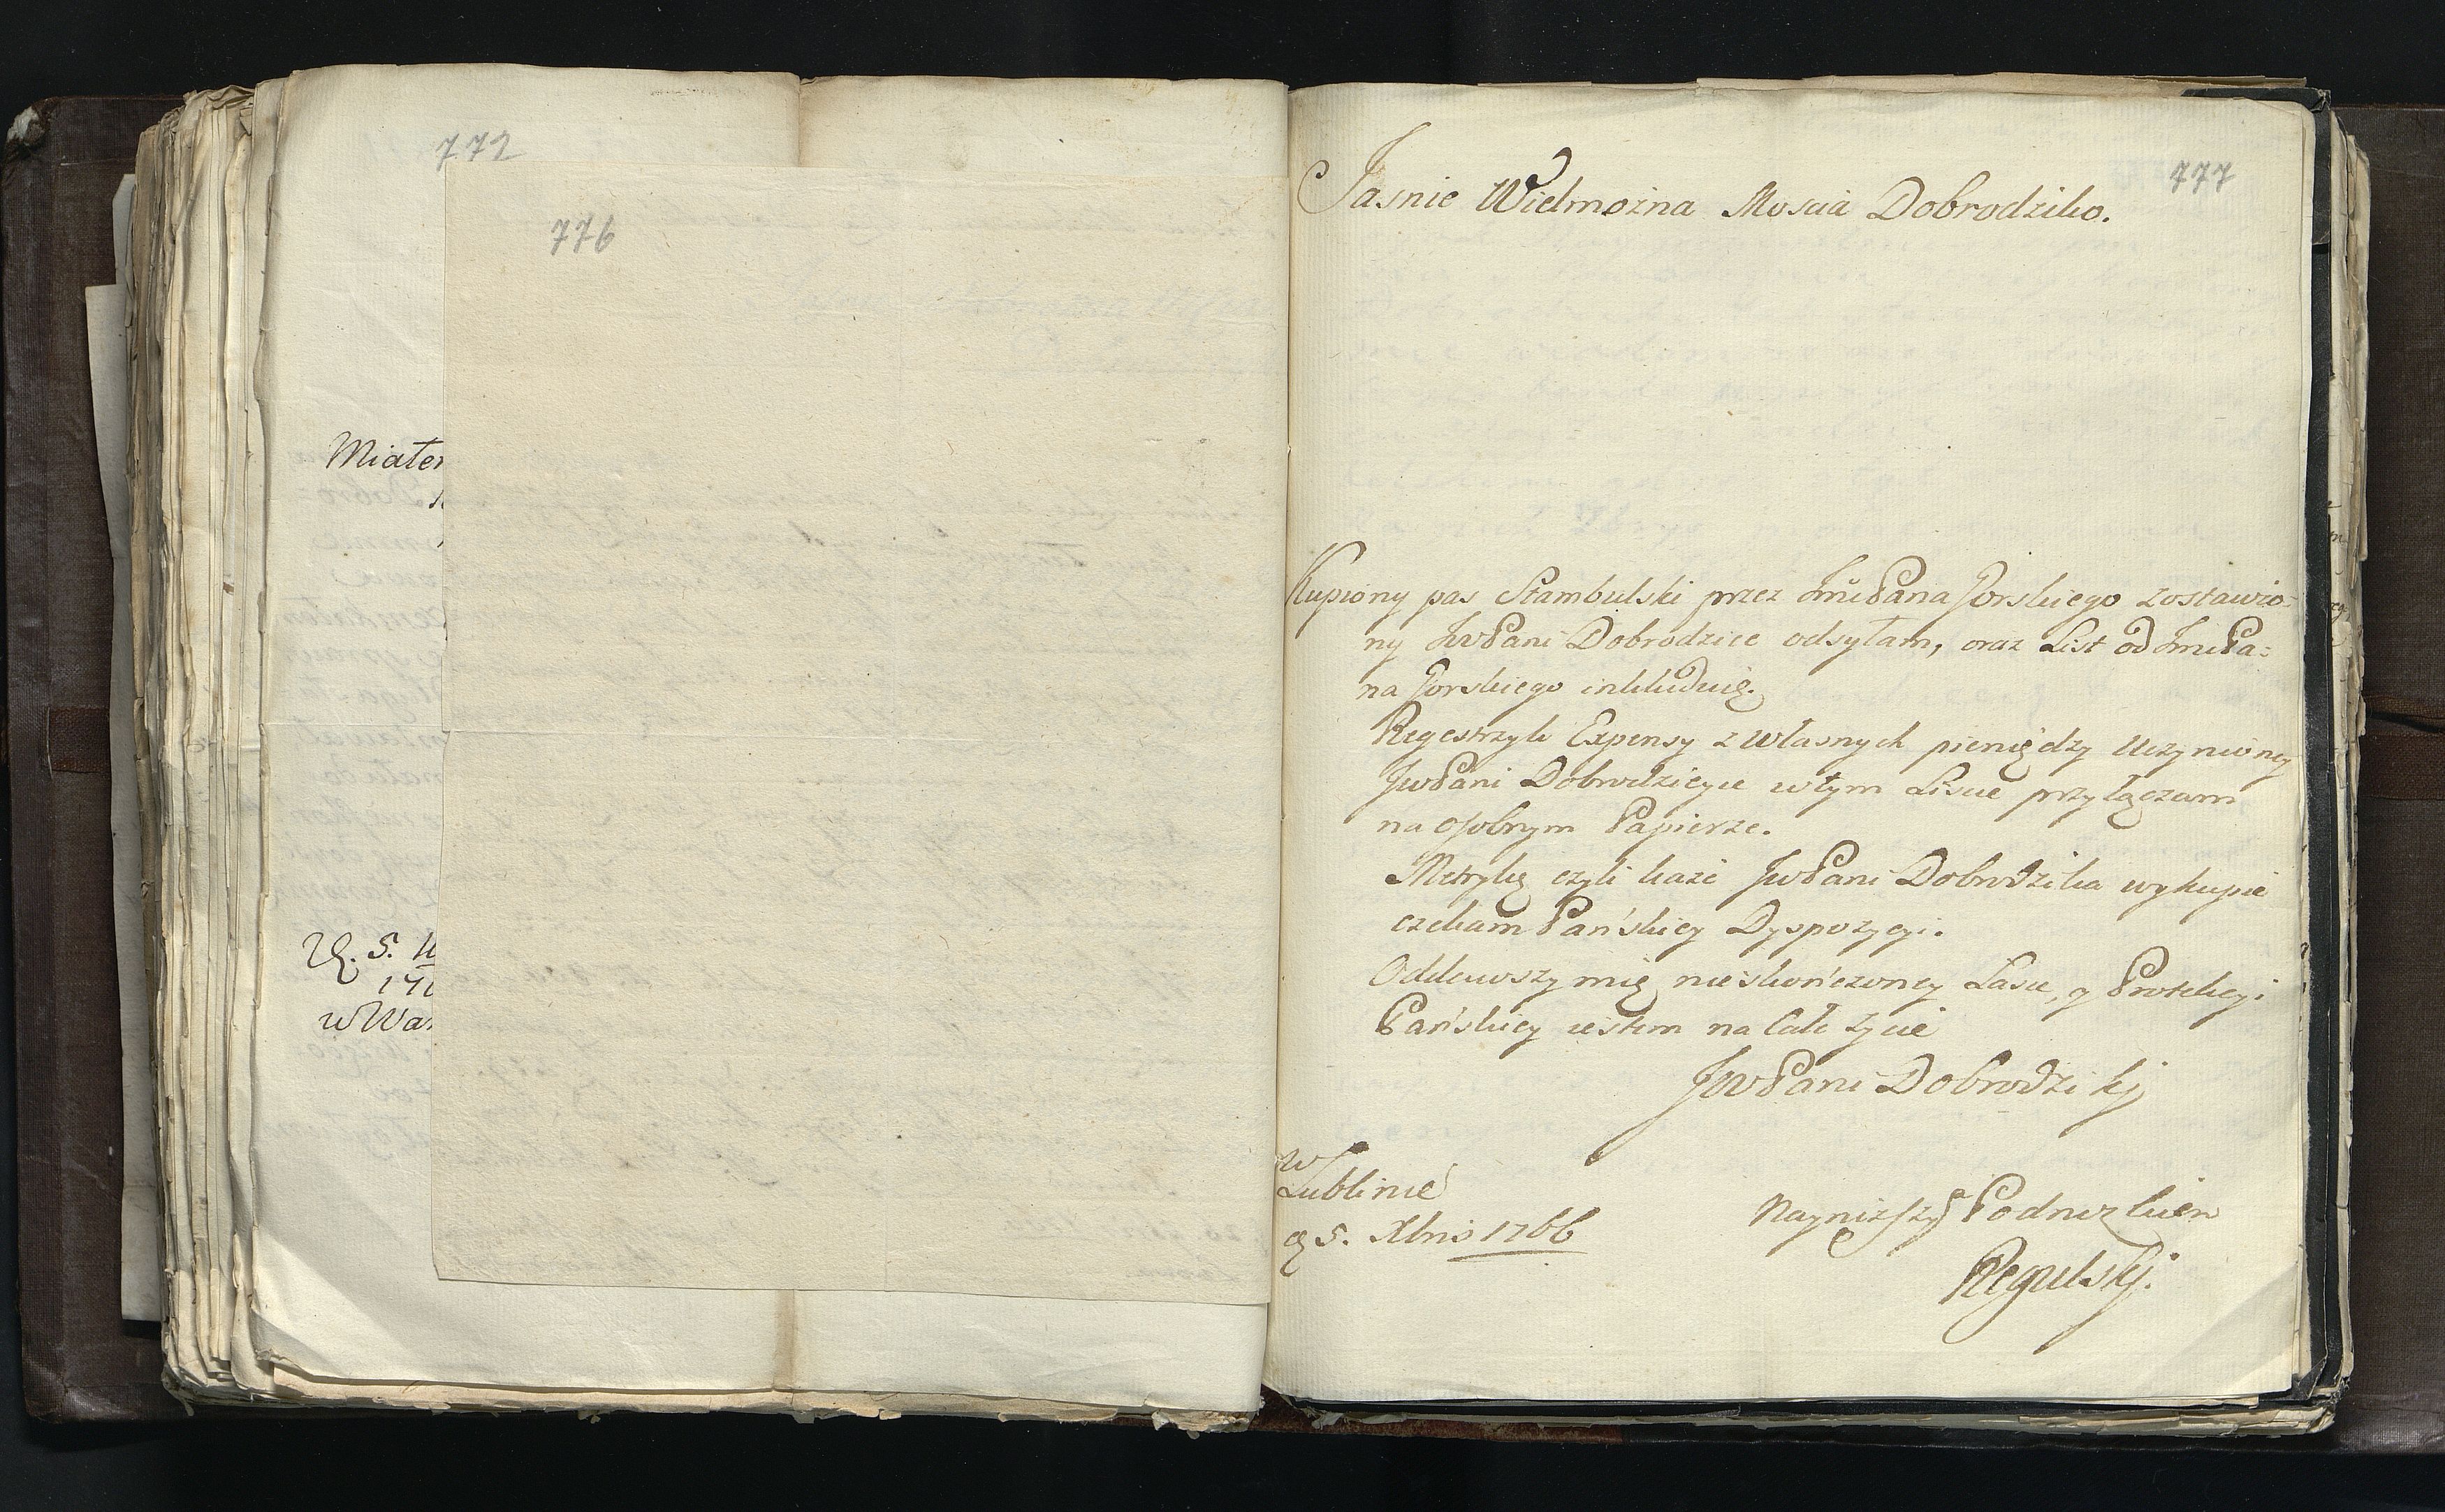 772
776
Miałem
D. 5.
w War
777
Jasnie Wielmożna Moscia Dobrodziko.
Kupiony pas Stambulski przez JmciPana Gorskiego zostawio=
ny JwPani Dobrodzice odsyłam, oraz List od JmciPa=
na Gorskiego inkluduię.
Regestrzyk Expensy z własnych pieniędzy uczynioney
JwPani Dobrodzieyce w tym Liscie przyłączam
na osobnym Papierze.
Metrykę czyli każe JwPani Dobrodzika wykupić
czekam Pańskiey Dyspozycyi.
Oddawszy mię nieskończoney Łasce, y Protekcyi
Pańskiey iestem na całe życie
JWPani Dobrodziki
w
Lublinie
d 5. Xbris 1766
Nayniższy Podnożkiem
Regulski.